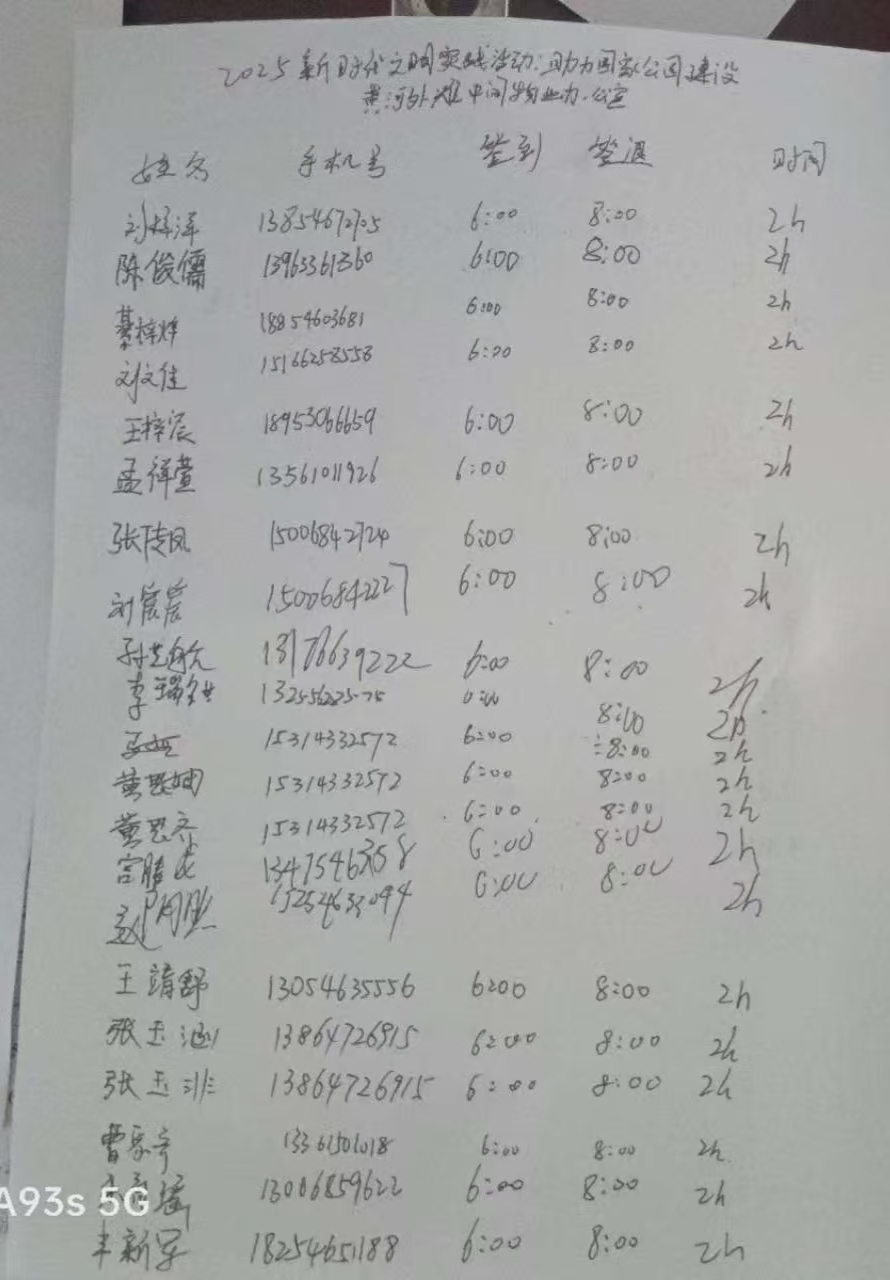 2025新时代文明实践活动:助力国家公园建设
黄河外滩中间物业办公室
姓名 手机号 签到 签退 时间
刘梓洋 13854672705 6:00 8:00 2h
陈俊儒 13963361360 6:00 8:00 2h
綦梓烨 18854603681 6:00 8:00 2h
刘文佳 15166258558 6:00 8:00 2h
王梓宸 18953066659 6:00 8:00 2h
孟祥萱 13561011926 6:00 8:00 2h
张陵凤 15006842724 6:00 8:00 2h
刘宸宸 15006842227 6:00 8:00 2h
孙艺航 13176639222 6:00 8:00 2h
李瑞 8:00 2h
15314332572 6:00 8:00 2h
黄思娴 15314332572 6:00 8:00 2h
黄思齐 15314332572 6:00 8:00 2h
宫腾 13475463158 6:00 8:00 2h
赵 15254633094 6:00 8:00 2h
王靖舒 13054635556 6:00 8:00 2h
张玉涵 13864726915 6:00 8:00 2h
张玉洪 13864726915 6:00 8:00 2h
曹家宁 13361501018 6:00 8:00 2h
瑶 13006859622 6:00 8:00 2h
丰新军 18254651188 6:00 8:00 2h
A93s 5G